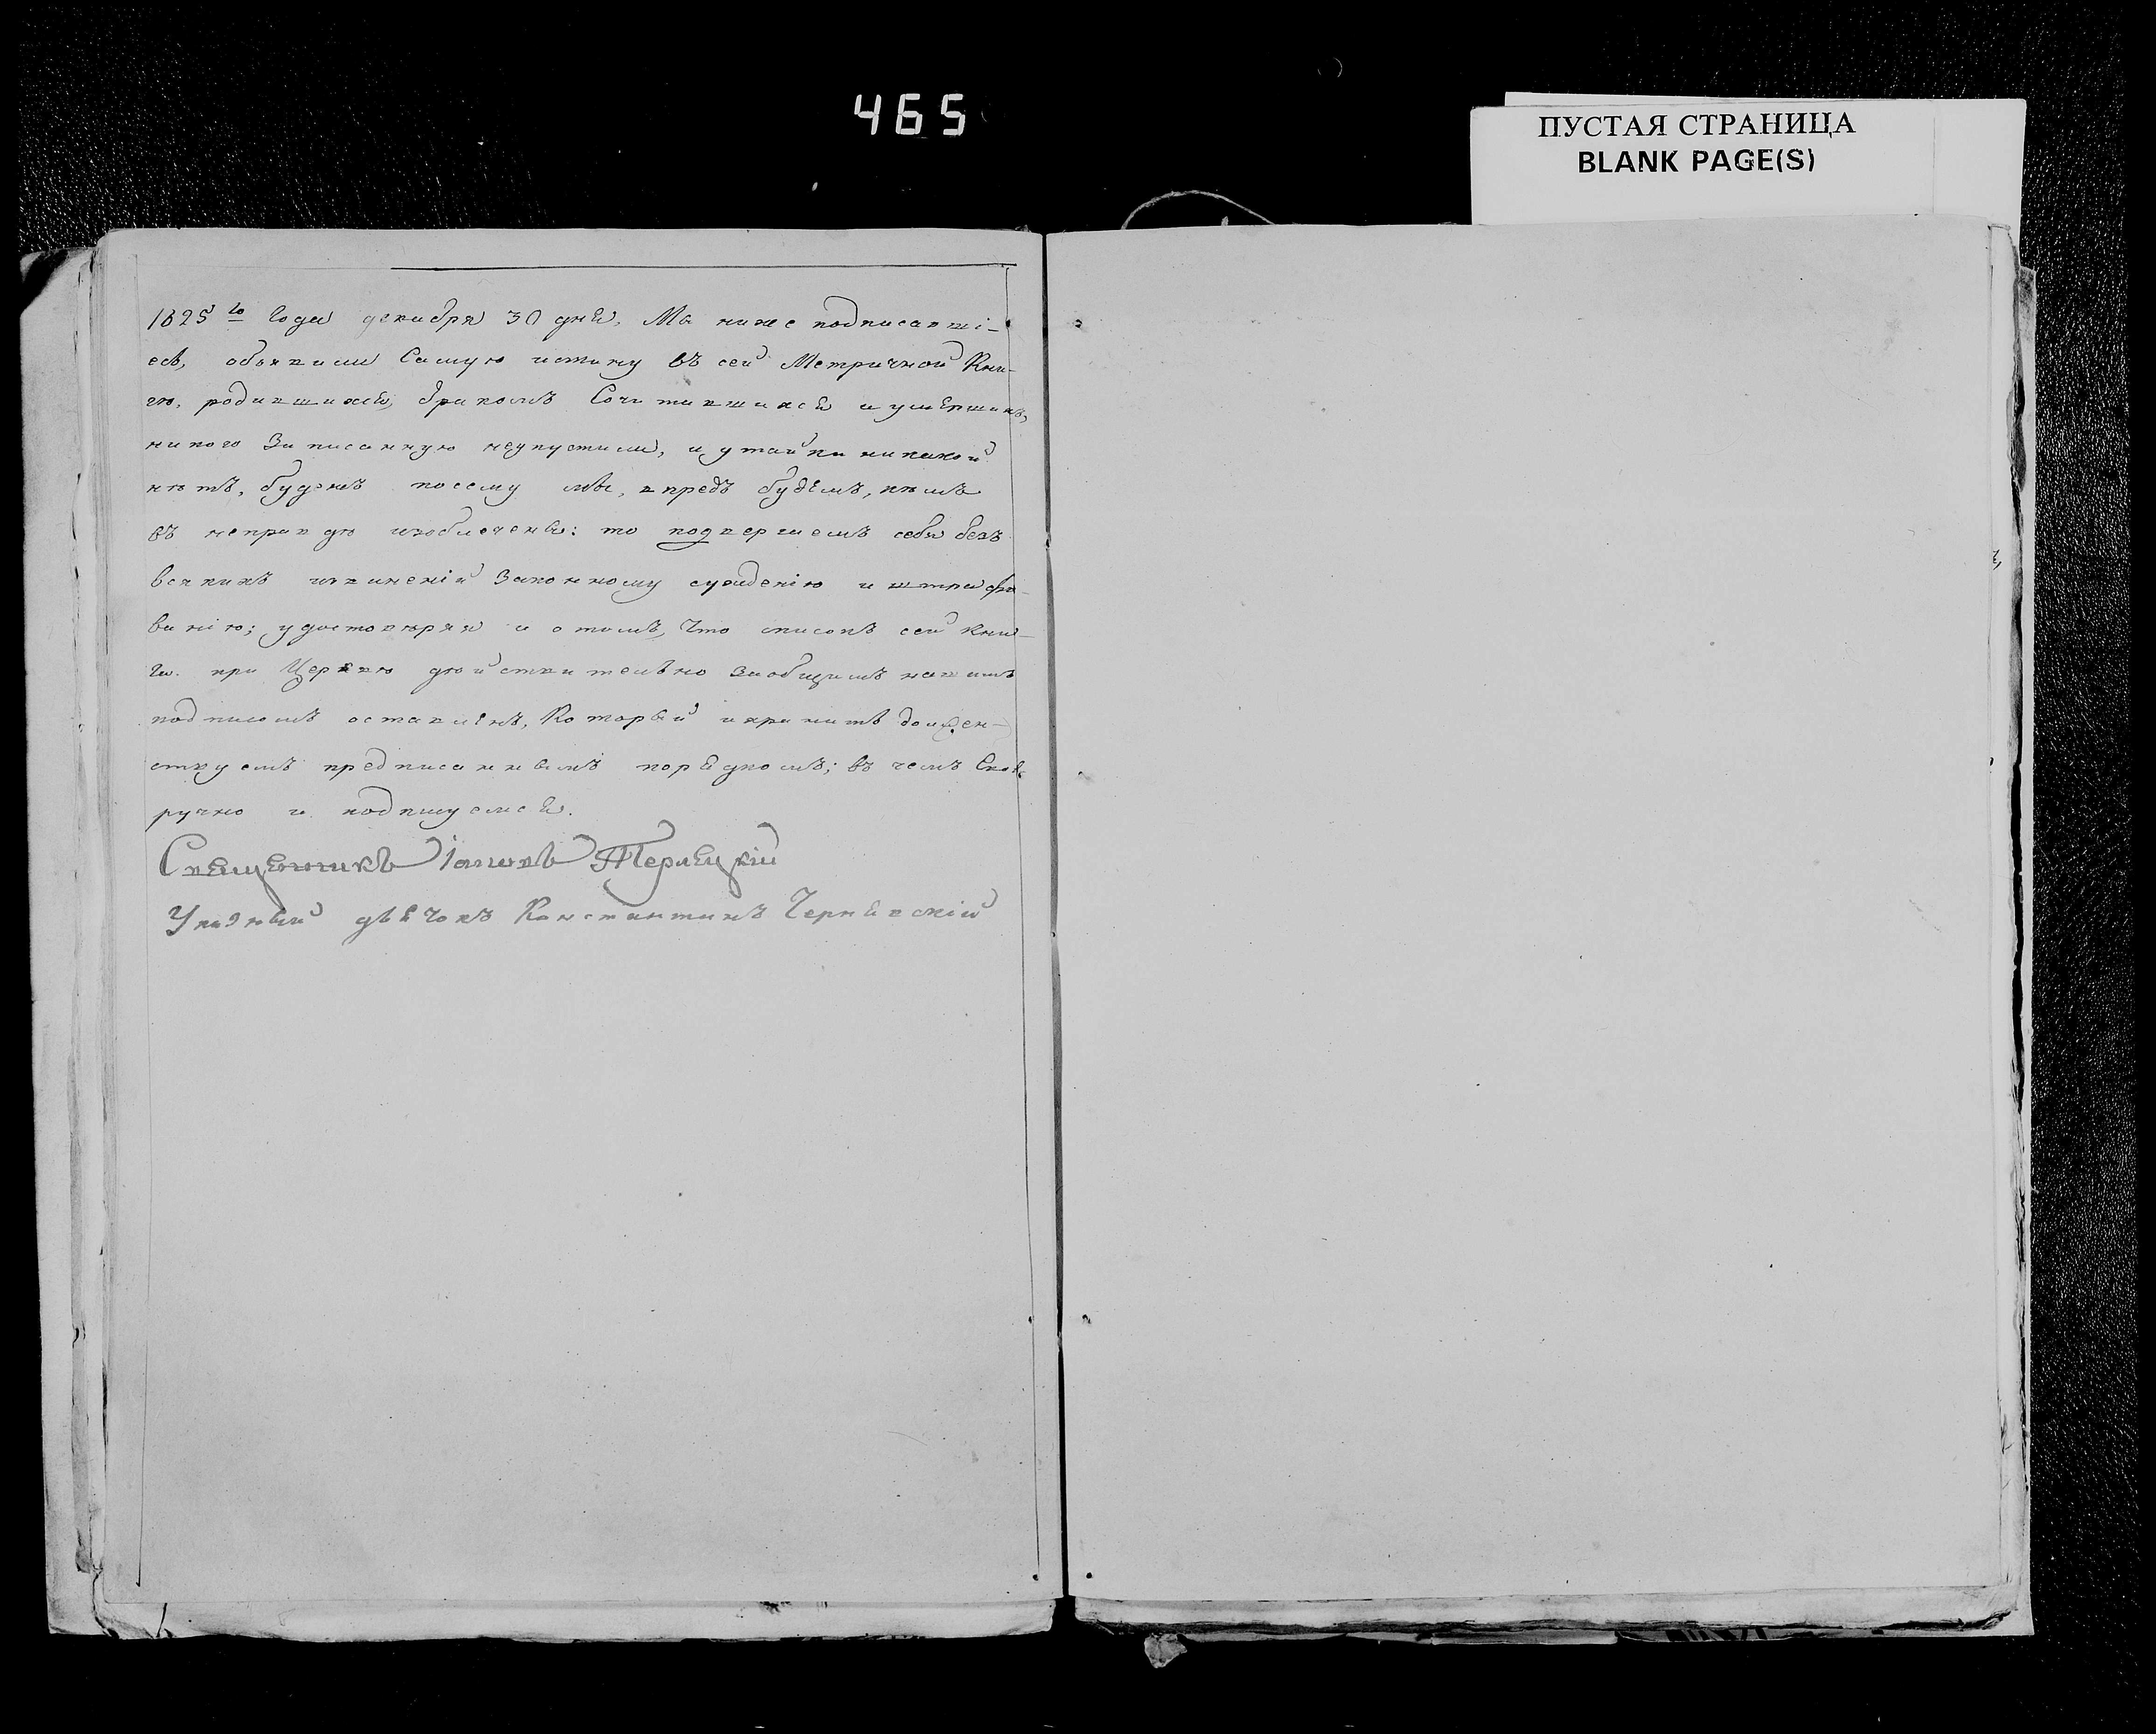 465
ПУСТАЯ СТРАНИЦА
BLANK PAGE(S)
1825го года декабря 30 дня, Мы ниже подписавші-
есь, объявили самую истину въ сей Метричной Кни-
гѣ, родившихся, бракомъ Сочитавшихся и умершихъ,
никого Записанную неупустили, и утайки никакой
нѣтъ, будемъ посему мы, впредь будемъ, кѣмъ
въ неправдѣ изобличены: то подвергаемъ себя безъ
всякихъ извиненій Законному сужденію и штрафо-
ванію; удостовѣряя и отомъ, Что списокъ сей кни-
ги при Церквѣ дѣйствительно Заобщимъ нашимъ
подписомъ оставленъ, Который и хранить должен-
ствуемъ предписаннымъ порядкомъ; въ чемъ Свое-
ручно и подпишуемся.
Священникъ Іаковъ Терлецкій
Указный дьячокъ Константинъ Чернявскій